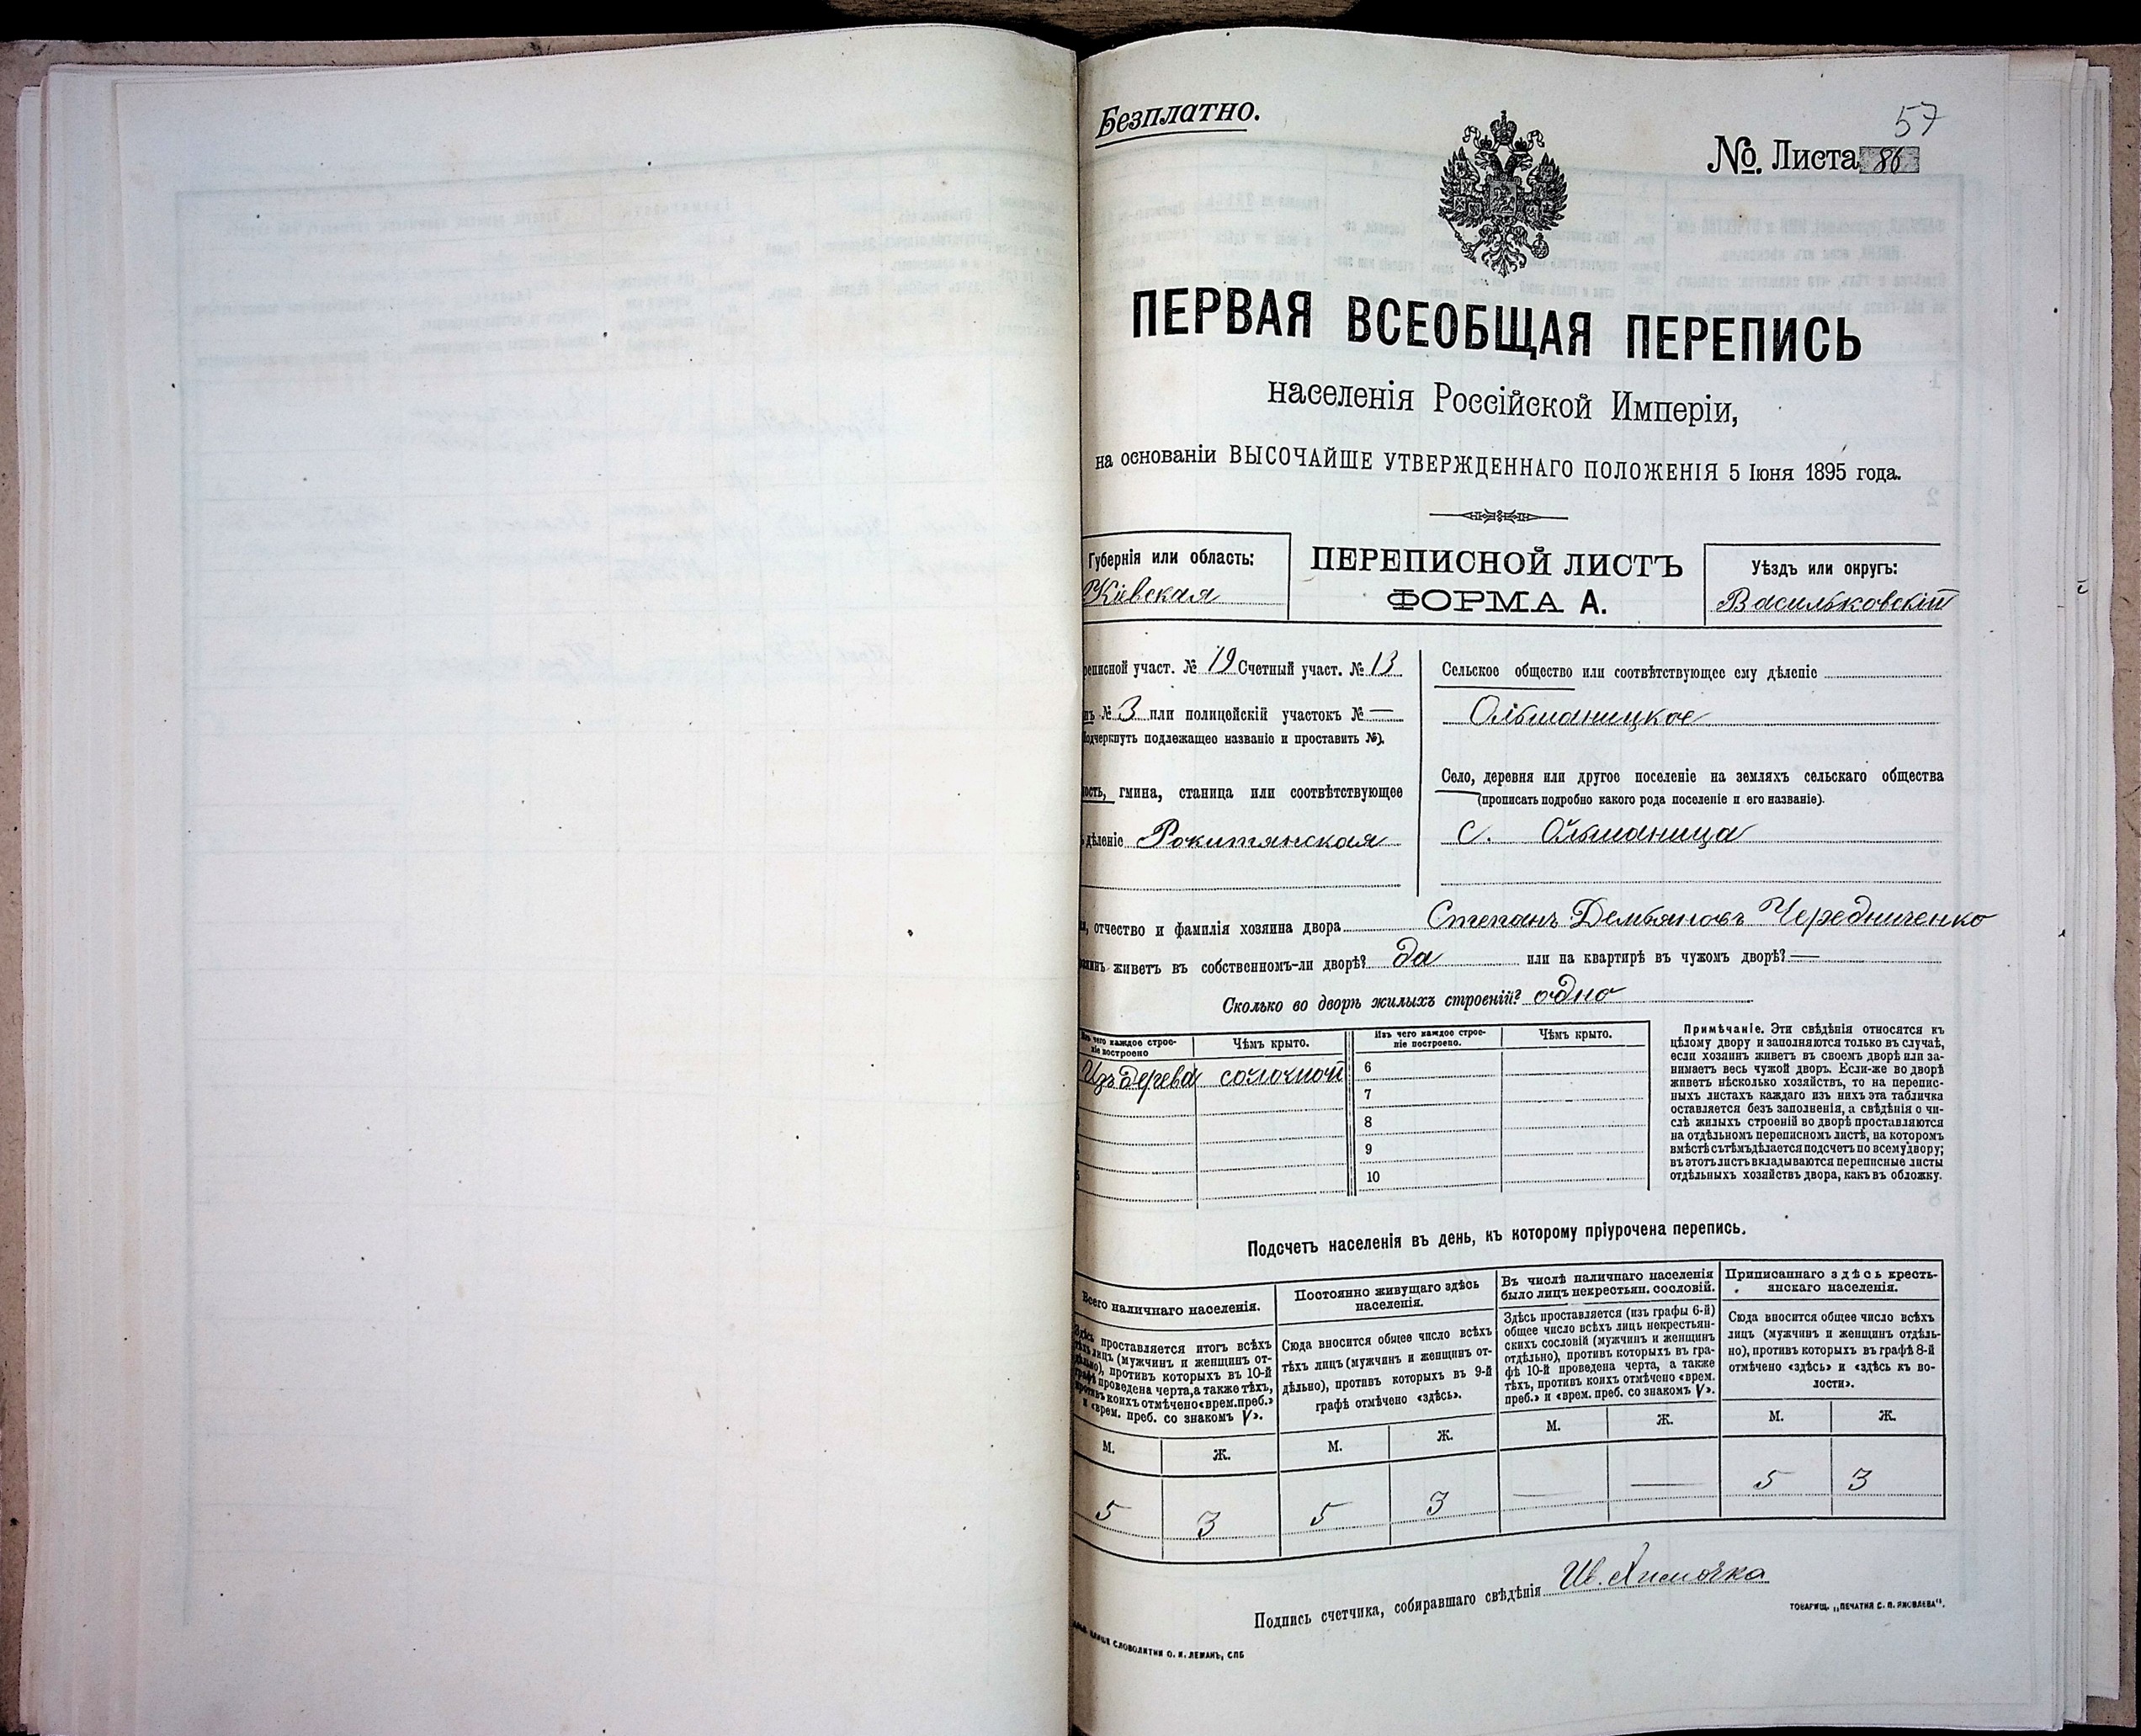 Безплатно.
57
№. Листа 86
ПЕРВАЯ ВСЕОБЩАЯ ПЕРЕПИСЬ
населенія Россійской Имперіи,
на основаніи ВЫСОЧАЙШЕ УТВЕРЖДЕННАГО ПОЛОЖЕНІЯ 5 Іюня 1895 года.
Губернія или область:
Кіевская
ПЕРЕПИСНОЙ ЛИСТЪ
ФОРМА А.
Уѣздъ или округъ:
Васильковскій
реписной участ. № 19 Счетный участ. № 13
нъ № 3 или полицейскій участокъ № —
Подчеркнуть подлежащее названіе и проставить №).
ость, гмина, станица или соотвѣтствующее
дѣленіе Рокитянская
Сельское общество или соотвѣтствующее ему дѣленіе
Ольшаницкое
Село, деревня или другое поселеніе на земляхъ сельскаго общества
(прописать подробно какого рода поселеніе и его названіе).
с. Ольшаница
отчество и фамилія хозяина двора Степанъ Демьяновъ Чередниченко
живетъ въ собственномъ-ли дворѣ? да или на квартирѣ въ чужомъ дворѣ? —
Сколько во дворѣ жилыхъ строеній? одно
Изъ чего каждое строе-
ніе построено
Чѣмъ крыто.
Изъ чего каждое строе-
ніе построено.
Чѣмъ крыто.
Изъ дерева соломой
6
7
8
9
10
Примѣчаніе. Эти свѣдѣнія относятся къ
цѣлому двору и заполняются только въ случаѣ,
если хозяинъ живетъ въ своемъ дворѣ или за-
нимаетъ весь чужой дворъ. Если-же во дворѣ
живетъ нѣсколько хозяйствъ, то на перепис-
ныхъ листахъ каждаго изъ нихъ эта табличка
оставляется безъ заполненія, а свѣдѣнія о чи-
слѣ жилыхъ строеній во дворѣ проставляются
на отдѣльномъ переписномъ листѣ, на которомъ
вмѣстѣ съ тѣмъ дѣлается подсчетъ по всему двору;
въ этотъ листъ вкладываются переписные листы
отдѣльныхъ хозяйствъ двора, какъ въ обложку.
Подсчетъ населенія въ день, къ которому пріурочена перепись.
Всего наличнаго населенія.
Здѣсь проставляется итогъ всѣхъ
тѣхъ лицъ (мужчинъ и женщинъ от-
дѣльно), противъ которыхъ въ 10-й
графѣ проведена черта, а также тѣхъ,
противъ коихъ отмѣчено «врем. преб.»
и «врем. преб. со знакомъ V».
М. Ж.
5 3
Постоянно живущаго здѣсь
населенія.
Сюда вносится общее число всѣхъ
тѣхъ лицъ (мужчинъ и женщинъ от-
дѣльно), противъ которыхъ въ 9-й
графѣ отмѣчено «здѣсь».
М. Ж.
5 3
Въ числѣ наличнаго населенія
было лицъ некрестьян. сословій.
Здѣсь проставляется (изъ графы 6-й)
общее число всѣхъ лицъ некрестьян-
скихъ сословій (мужчинъ и женщинъ
отдѣльно), противъ которыхъ въ гра-
фѣ 10-й проведена черта, а также
тѣхъ, противъ коихъ отмѣчено «врем.
преб.» и «врем. преб. со знакомъ V».
М. Ж.
— —
Приписаннаго здѣсь кресть-
янскаго населенія.
Сюда вносится общее число всѣхъ
лицъ (мужчинъ и женщинъ отдѣль-
но), противъ которыхъ въ графѣ 8-й
отмѣчено «здѣсь» и «здѣсь къ во-
лости».
М. Ж.
5 3
Подпись счетчика, собиравшаго свѣдѣнія Ив.
СЛОВОЛИТНИ О. И. ЛЕМАНЪ, СПБ
ТОВАРИЩ. „ПЕЧАТНЯ С. П. ЯКОВЛЕВА".